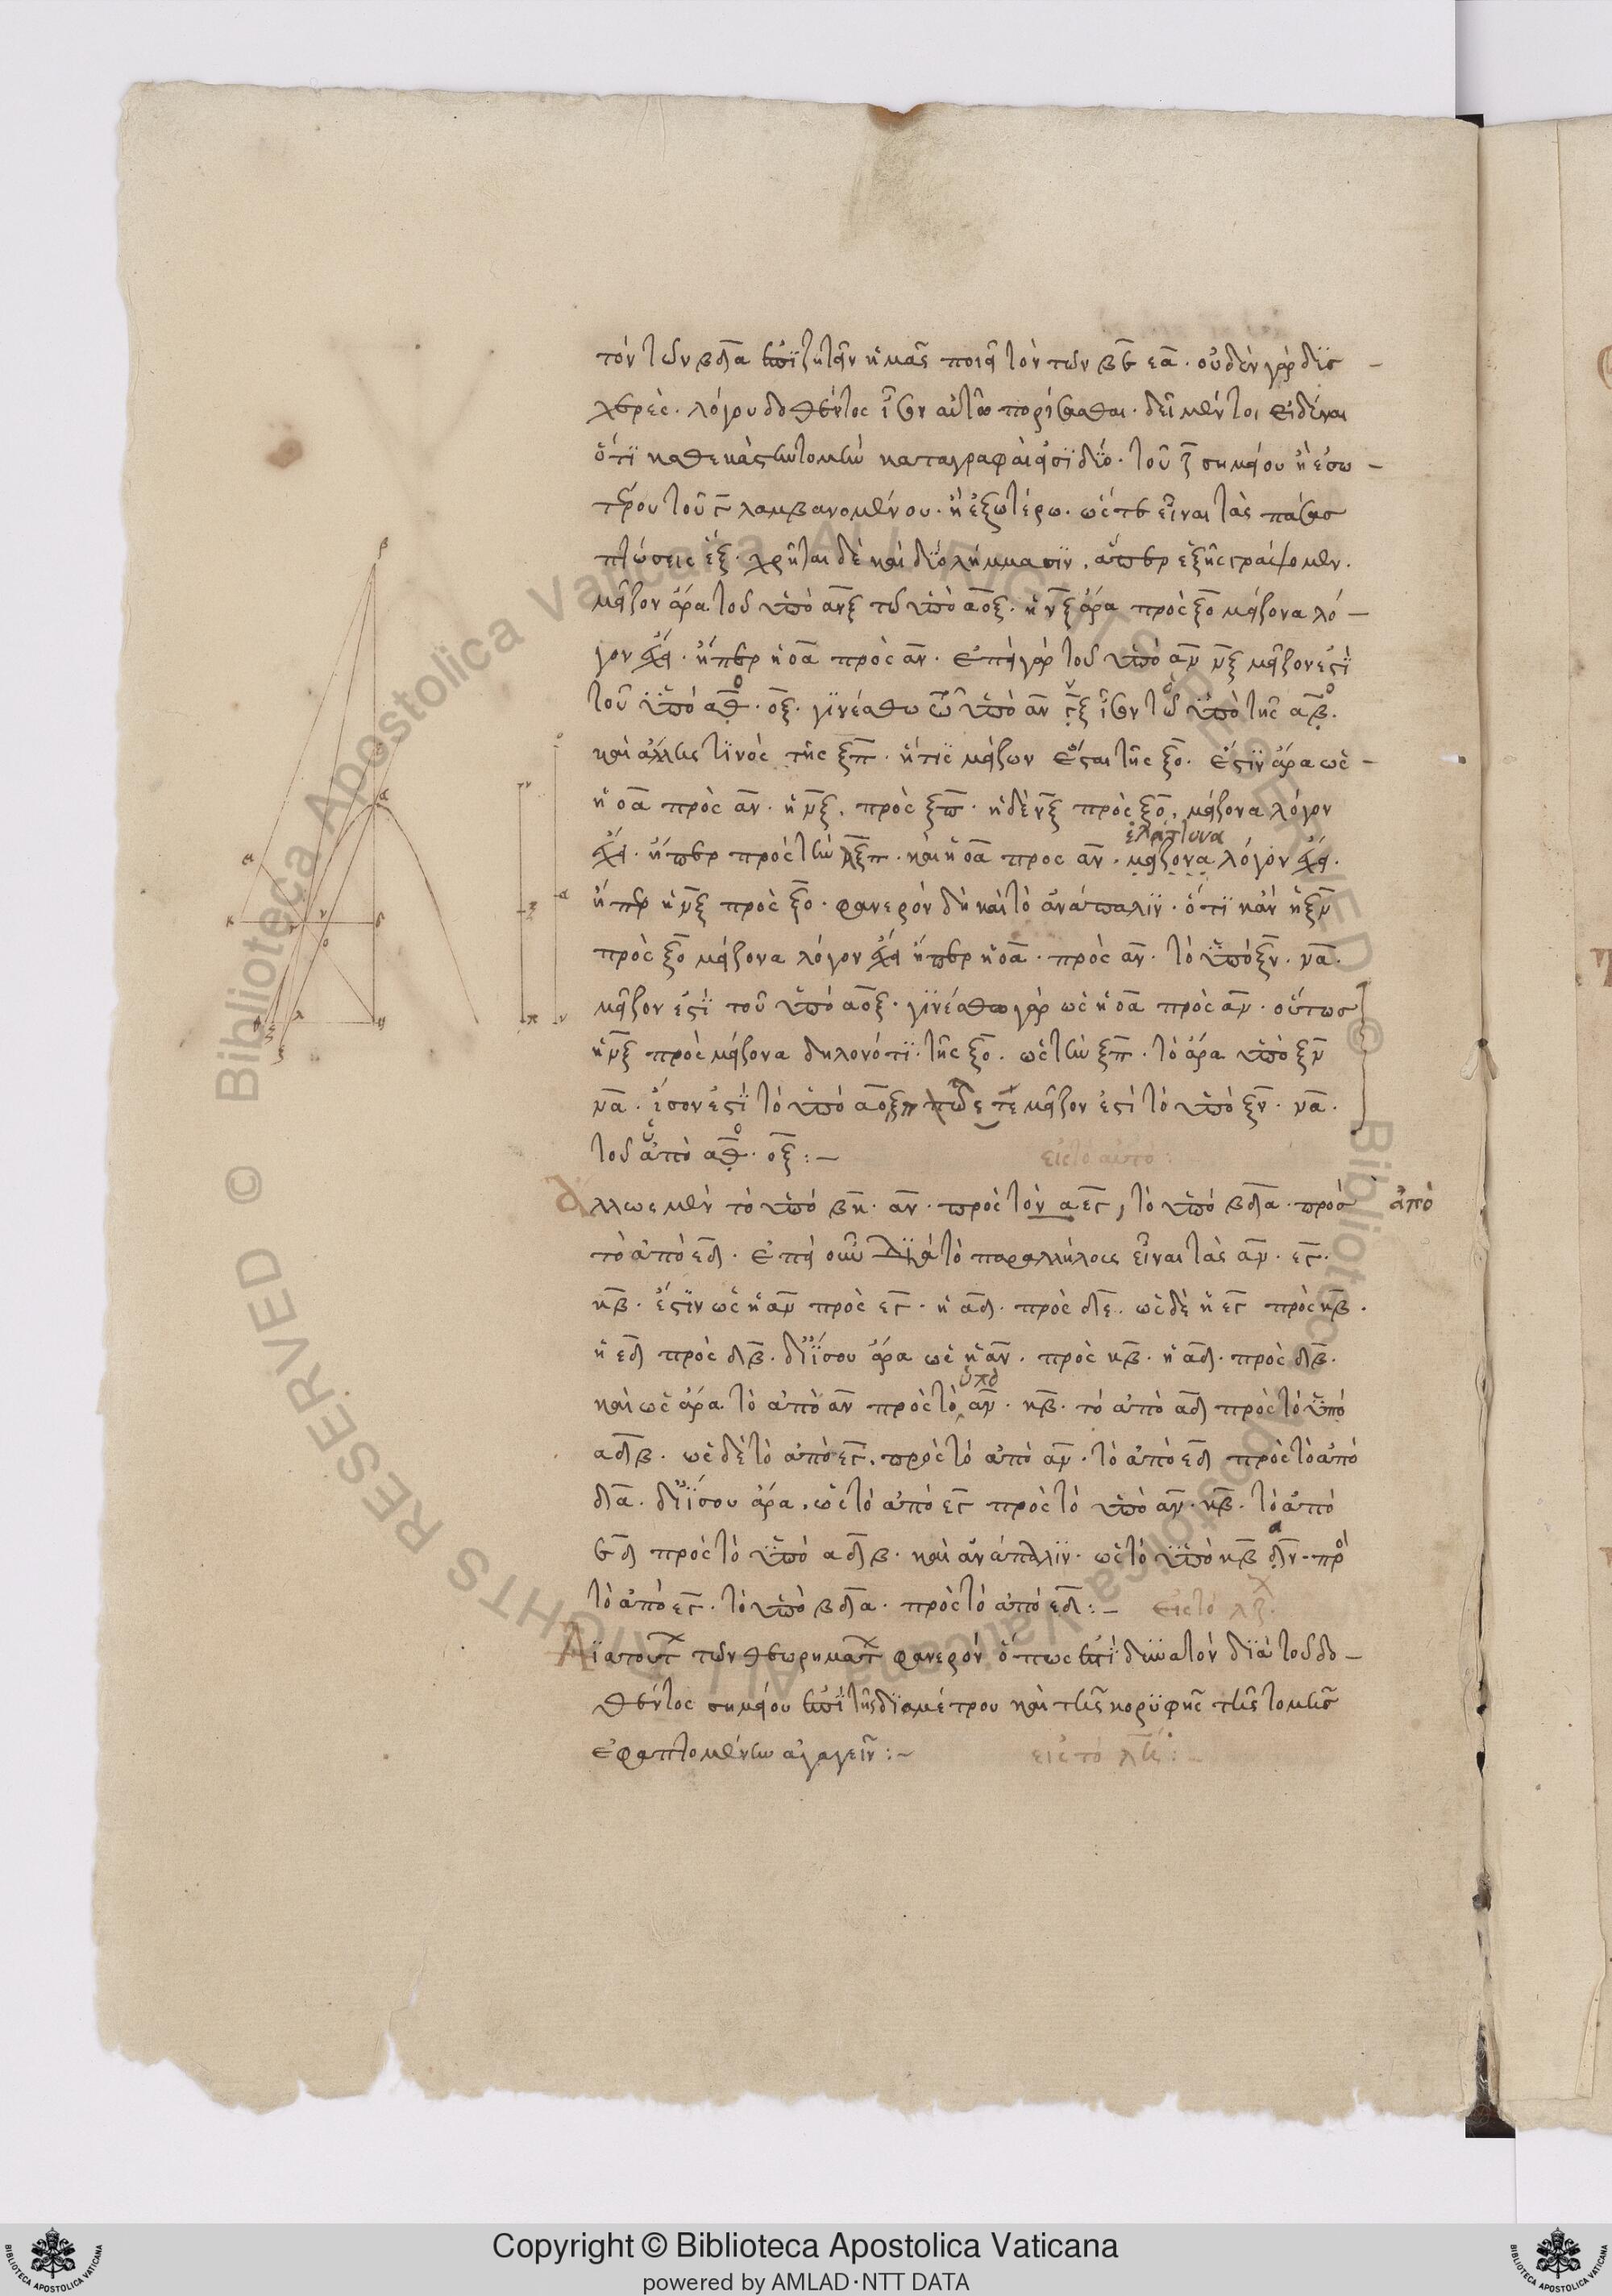 τὸν τῶν βδα ἐπιζητεῖν ἡμᾶς ποιεῖ τὸν τῶν βγ εα. οὐδὲν γὰρ δϊσ
χερές. λόγου δοθέντος ἴσον αὐτῶ πορίσασθαι. δεῖ μέντοι εἰδέναι
ὅτϊ καθ ἑκάστην τομὴν καταγραφαὶ εἰσϊ δύο. τοῦ ζ σημείου ἢ ἐσω
τέρου τοῦ γ λαμβανομένου. ἢ ἐξωτέρω. ὥστε εἶναι τὰς πάσας
πτώσεις ἕξ. χρῆται δὲ καὶ δύο λήμμασϊν. ἅπερ ἑξῆς γράψομεν.
μεῖζον ἄρα τοῦ ὑπὸ ανξ τοῦ ὑπὸ αοξ. ἡ νξ ἄρα πρὸς ξο μείζονα λό
γον ἔχει. ἤπερ ἡ οα πρὸς αν. ἐπεὶ γὰρ τοῦ ὑπὸ αν νξ μεῖζον ἐστϊ
τοῦ ὑπὸ αο. οξ. γϊνέσθω τῶ ὑπὸ αν νξ ἴσον τὸ ὑπὸ τῆς αο.
καὶ ἄλλης τϊνὸς τῆς ξπ. ἥτϊς μείζων ἔσται τῆς ξο. ἔστϊν ἄρα ὡς
ἡ οα πρὸς αν. ἡ νξ. πρὸς ξπ. ἡ δὲ νξ πρὸς ξο. μείζονα λόγον
ἐλάττονα
ἔχει. ἤπερ πρὸς τὴν ξπ. καὶ ἡ οα προς αν. μείζονα λόγον ἔχει.
ἤπερ ἡ νξ πρὸς ξο. φανερὸν δὴ καὶ τὸ ἀνάπαλϊν. ὅτϊ κἂν ἡ ξν
πρὸς ξο μείζονα λόγον ἔχει ἤπερ ἡ οα. πρὸς αν. τὸ ὑπὸ ξν. να.
μεῖζον ἐστϊ τοῦ ὑπὸ αοξ. γϊνέσθω γὰρ ὡς ἡ οα πρὸς αν. οὕτως
ἡ νξ πρὸς μείζονα δηλονότϊ. τῆς ξο. ὡς τὴν ξπ. τὸ ἄρα ὑπὸ ξν
να. ἴσον ἐστϊ τὸ ὑπὸ αο μεῖζον ἐστὶ τὸ ὑπὸ ξν. να.
τοῦ ὑπὸ αο. οξ:–
εἰς τὸ αὐτό:
ἄλλως μὲν τὸ ὑπὸ βκ. αν. πρὸς τὸν αεγ, τὸ ὑπὸ βδα. πρὸς ἀπὸ
τὸ ἀπὸ εδ. ἐπεὶ οὖν διὰ τὸ παραλλήλους εἶναι τὰς αν. εγ.
κβ. ἔστϊν ὡς ἡ αν πρὸς εγ. ἡ αδ. πρὸς δε. ὡς δὲ ἡ εγ πρὸς κβ.
ἡ εδ πρὸς δβ. δϊΐσου ἄρα ὡς ἡ αν. πρὸς κβ. ἡ αδ. πρὸς δβ.
ὑπὸ
καὶ ὡς ἄρα τὸ ἀπὸ αν πρὸς τὸ αν. κβ. τὸ ἀπὸ αδ πρὸς τὸ ὑπὸ
αδβ. ὡς δὲ τὸ ἀπὸ εγ. πρὸς τὸ ἀπὸ αν. τὸ ἀπὸ εδ πρὸς τὸ ἀπὸ
δα. δϊΐσου ἄρα. ὡς τὸ ἀπὸ εγ πρὸς τὸ ὑπὸ αν. κβ. τὸ ἀπὸ
εδ πρὸς τὸ ὑπὸ αδβ. καὶ ἀνάπαλϊν. ὡς τὸ ὑπὸ κβ αν. πρὸ
τὸ ἀπὸ εγ. τὸ ὑπὸ βδα. πρὸς τὸ ἀπὸ εδ:–
εἰς τὸ λξ.
Δϊὰ τουτ τῶν θεωρηματ φανερὸν ὅπως ἐστϊ δυνατὸν δϊὰ τοῦ δο
θέντος σημείου ἐπϊ τῆς δϊαμέτρου καὶ τῆς κορϋφῆς τῆς τομῆς
ἐφαπτομένην ἀγαγεῖν:–
εἰς τὸ λη:–
Copyright © Biblioteca Apostolica Vaticana
powered by AMLAD·NTT DATA